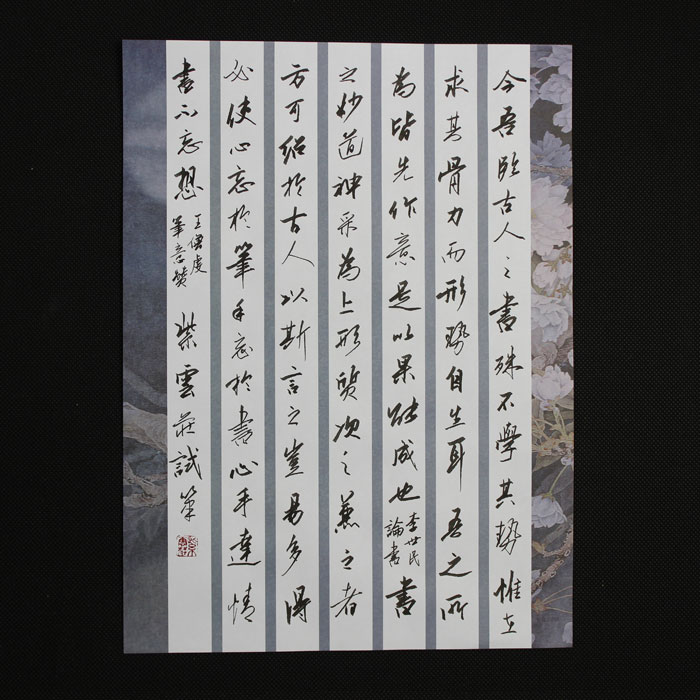 今吾临古人之書殊不學其势惟在
求其骨力而形势自生耳吾之所
為皆先作意是以果能成也李世民論書書
之妙道神采為上形質次之兼之者
方可紹於古人以斯言之豈易多得
必使心忘於筆手忘於書心手達情
書不忘想王僧虔筆意赞紫雲莊試筆